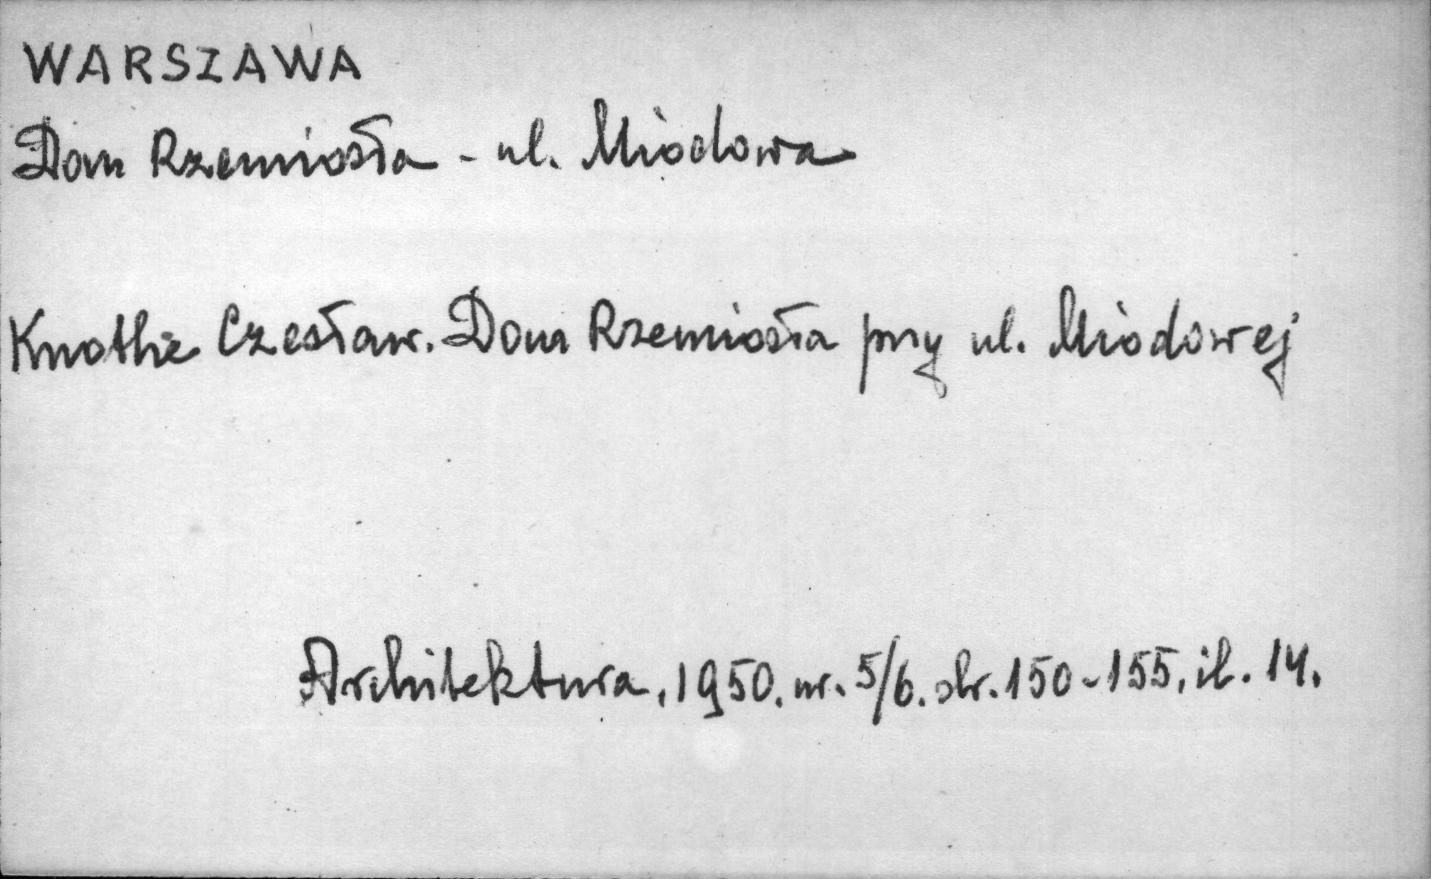 WARSZAWA
Dom Rzemiosła - ul. Miodowa
Knothe Czesław. Dom Rzemiosła przy ul. Miodowej
Architektura, 1950. nr. 5/6. str. 150-155, il. 14.